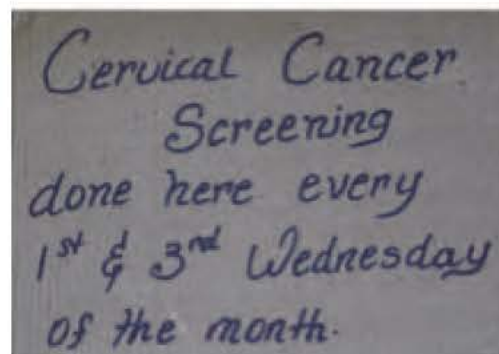 Cervical Cancer
Screening
done here every
1st & 3rd Wednesday
of the month.